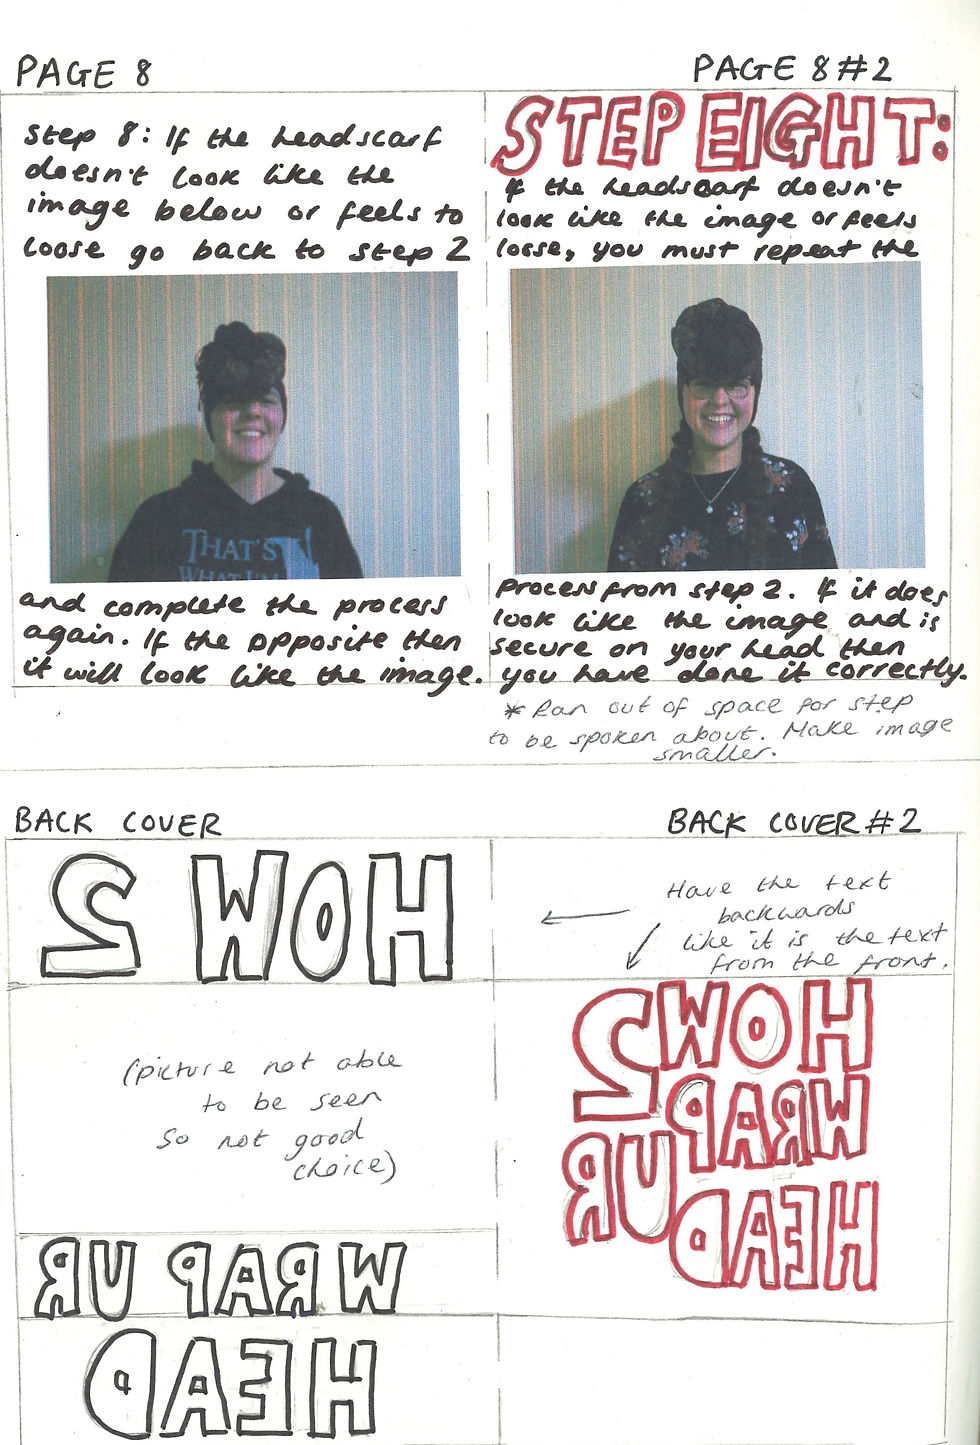 PAGE 8
Step 8: If the headscarf
doesn't look like the
image below or feels to
loose go back to step 2
THAT'S
WHAT I'M
and complete the process
again. If the opposite then
it will look like the image.
PAGE 8#2
STEP EIGHT:
If the headscarf doesn't
look like the image or feels
losse, you must repeat the
process from step 2. If it does
look like the image and is
secure on your head then
you have done it correctly.
* Ran out of space for step
to be spoken about. Make image
smaller.
BACK COVER
HOW 2
(picture not able
to be seen
so not good
choice)
WRAP UR
HEAD
BACK COVER #2
Have the text
backwards
like it is the text
from the front.
HOW 2
WRAP
UR
HEAD